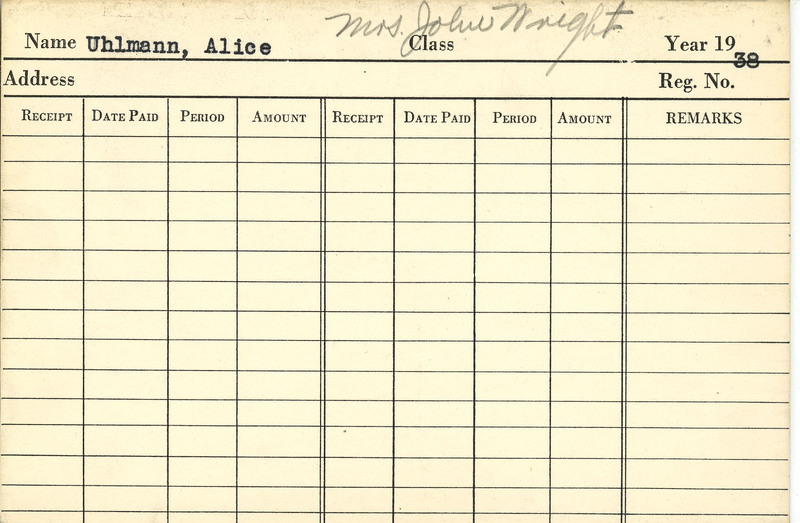 Mrs. John Wright
Name Uhlmann, Alice Class Year 1938
Address Reg. No.
RECEIPT DATE PAID PERIOD AMOUNT RECEIPT DATE PAID PERIOD AMOUNT REMARKS